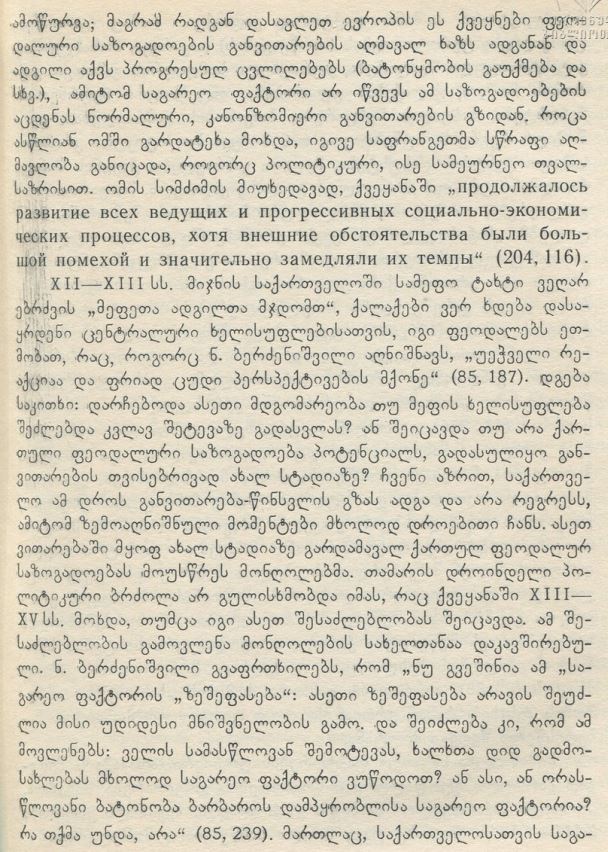 ამოწურვა; მაგრამ რადგან დასავლეთ ევროპის ეს ქვეყნები ფეო-
დალური საზოგადოების განვითარების აღმავალ ხაზს ადგანან და
ადგილი აქვს პროგრესულ ცვლილებებს (ბატონყმობის გაუქმება და
სხვ.), ამიტომ საგარეო ფაქტორი არ იწვევს ამ საზოგადოებების
აცდენას ნორმალური, კანონზომიერი განვითარების გზიდან. როცა
ასწლიან ომში გარდატეხა მოხდა, იგივე საფრანგეთმა სწრაფი აღ-
მავლობა განიცადა, როგორც პოლიტიკური, ისე სამეურნეო თვალ-
საზრისით. ომის სიმძიმის მიუხედავად, ქვეყანაში „продолжалось
развитие всех ведущих и прогрессивных социально-экономи-
ческих процессов, хотя внешние обстоятельства были боль-
шой помехой и значительно замедляли их темпы“ (204, 116).
XII—XIII სს. მიჯნის საქართველოში სამეფო ტახტი ვეღარ
ებრძვის „მეფეთა ადგილთა მჯდომთ“, ქალაქები ვერ ხდება დასა-
ყრდენი ცენტრალური ხელისუფლებისათვის, იგი ფეოდალებს ეთ-
მობათ, რაც, როგორც ნ. ბერძენიშვილი აღნიშნავს, „უეჭველი რე-
აქციაა და ფრიად ცუდი პერსპექტივების მქონე“ (85, 187). დგება
საკითხი: დარჩებოდა ასეთი მდგომარეობა თუ მეფის ხელისუფლება
შეძლებდა კვლავ შეტევაზე გადასვლას? ან შეიცავდა თუ არა ქარ-
თული ფეოდალური საზოგადოება პოტენციალს, გადასულიყო გან-
ვითარების თვისებრივად ახალ სტადიაზე? ჩვენი აზრით, საქართვე-
ლო ამ დროს განვითარება-წინსვლის გზას ადგა და არა რეგრესს,
ამიტომ ზემოაღნიშნული მომენტები მხოლოდ დროებითი ჩანს. ასეთ
ვითარებაში მყოფ ახალ სტადიაზე გარდამავალ ქართულ ფეოდალურ
საზოგადოებას მოუსწრეს მონღოლებმა. თამარის დროინდელი პო-
ლიტიკური ბრძოლა არ გულისხმობდა იმას, რაც ქვეყანაში XIII—
XV სს. მოხდა, თუმცა იგი ასეთ შესაძლებლობას შეიცავდა. ამ შე-
საძლებლობის გამოვლენა მონღოლების სახელთანაა დაკავშირებუ-
ლი. ნ. ბერძენიშვილი გვაფრთხილებს, რომ „ნუ გვეშინია ამ „სა-
გარეო ფაქტორის „ზეშეფასება“: ასეთი ზეშეფასება არავის შეუძ-
ლია მისი უდიდესი მნიშვნელობის გამო. და შეიძლება კი, რომ ამ
მოვლენებს: ველის სამასწლოვან შემოტევას, ხალხთა დიდ გადმო-
სახლებას მხოლოდ საგარეო ფაქტორი ვუწოდოთ? ან ასი, ან ორას-
წლოვანი ბატონობა ბარბაროს დამპყრობლისა საგარეო ფაქტორია?
რა თქმა უნდა, არა“ (85, 239). მართლაც, საქართველოსათვის საგა-